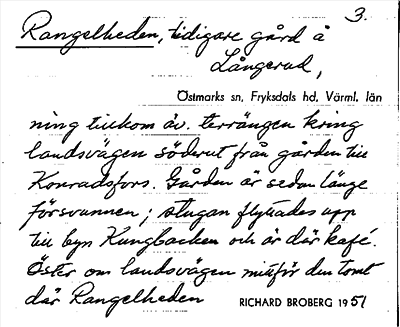 3.
Rangelheden, tidigare gård å
Långerud,
Östmarks sn, Fryksdals hd, Värml. län
ning tillkom äv. terrängen kring
landsvägen söderut från gården till
Konradsfors. Gården är sedan länge
försvunnen; stugan flyttades upp
till byn Kungbacken och är där kafé.
Öster om landsvägen mittför den tomt
där Rangelheden
RICHARD BROBERG 1951